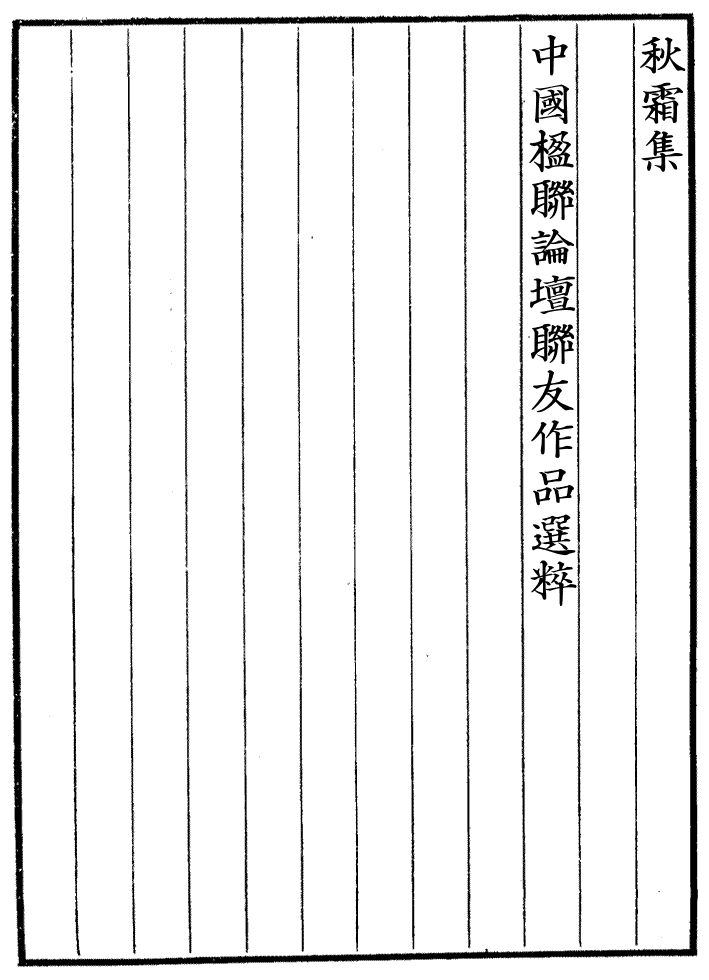 秋霜集
中國楹聯論壇聯友作品選粹